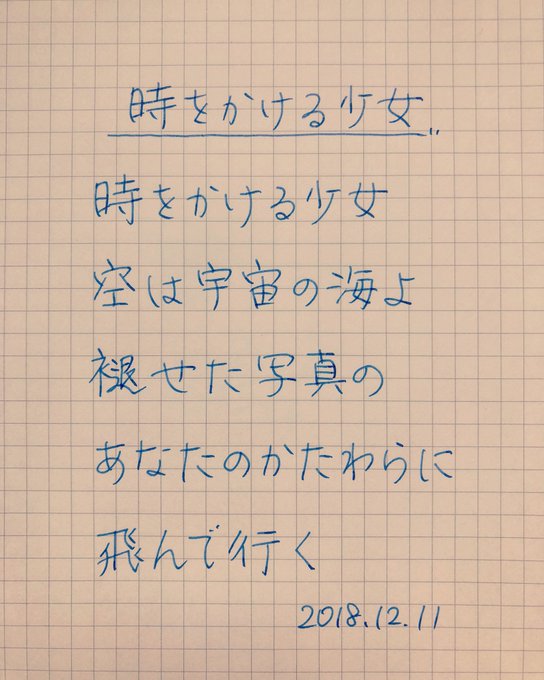 時をかける少女
時をかける少女
空は宇宙の海よ
褪せた写真の
あなたのかたわらに
飛んで行く
2018.12.11